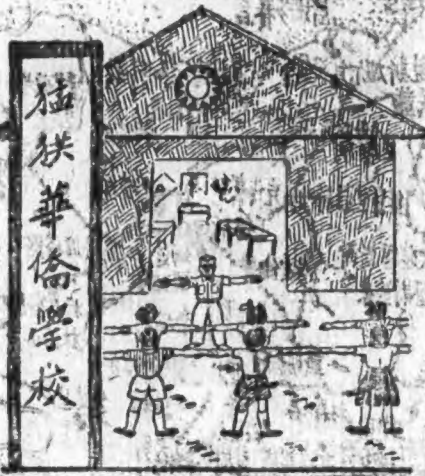 猛華僑學校